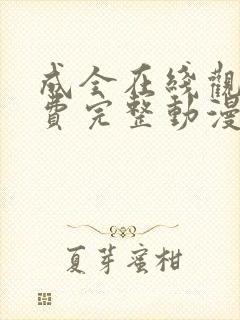 成全在綫觀
費完整動漫
夏芽蜜柑